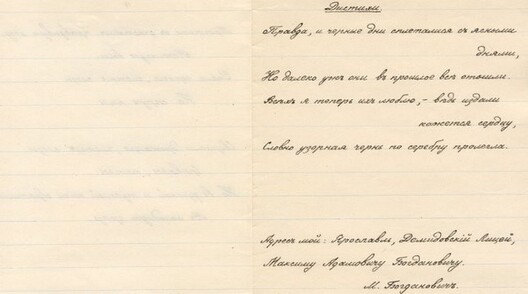 Дистихи
Правда, и черные дни сплетались съ ясными
днями,
Но далеко ужъ они въ прошлое всѣ отошли.
Всѣхъ я теперь ихъ люблю, – вѣдь издали
кажется сердцу,
Словно узорная чернь по серебру пролегла.
Адресъ мой: Ярославль, Демидовскій Лицей,
Максиму Адамовичу Богдановичу.
М. Богдановичъ.